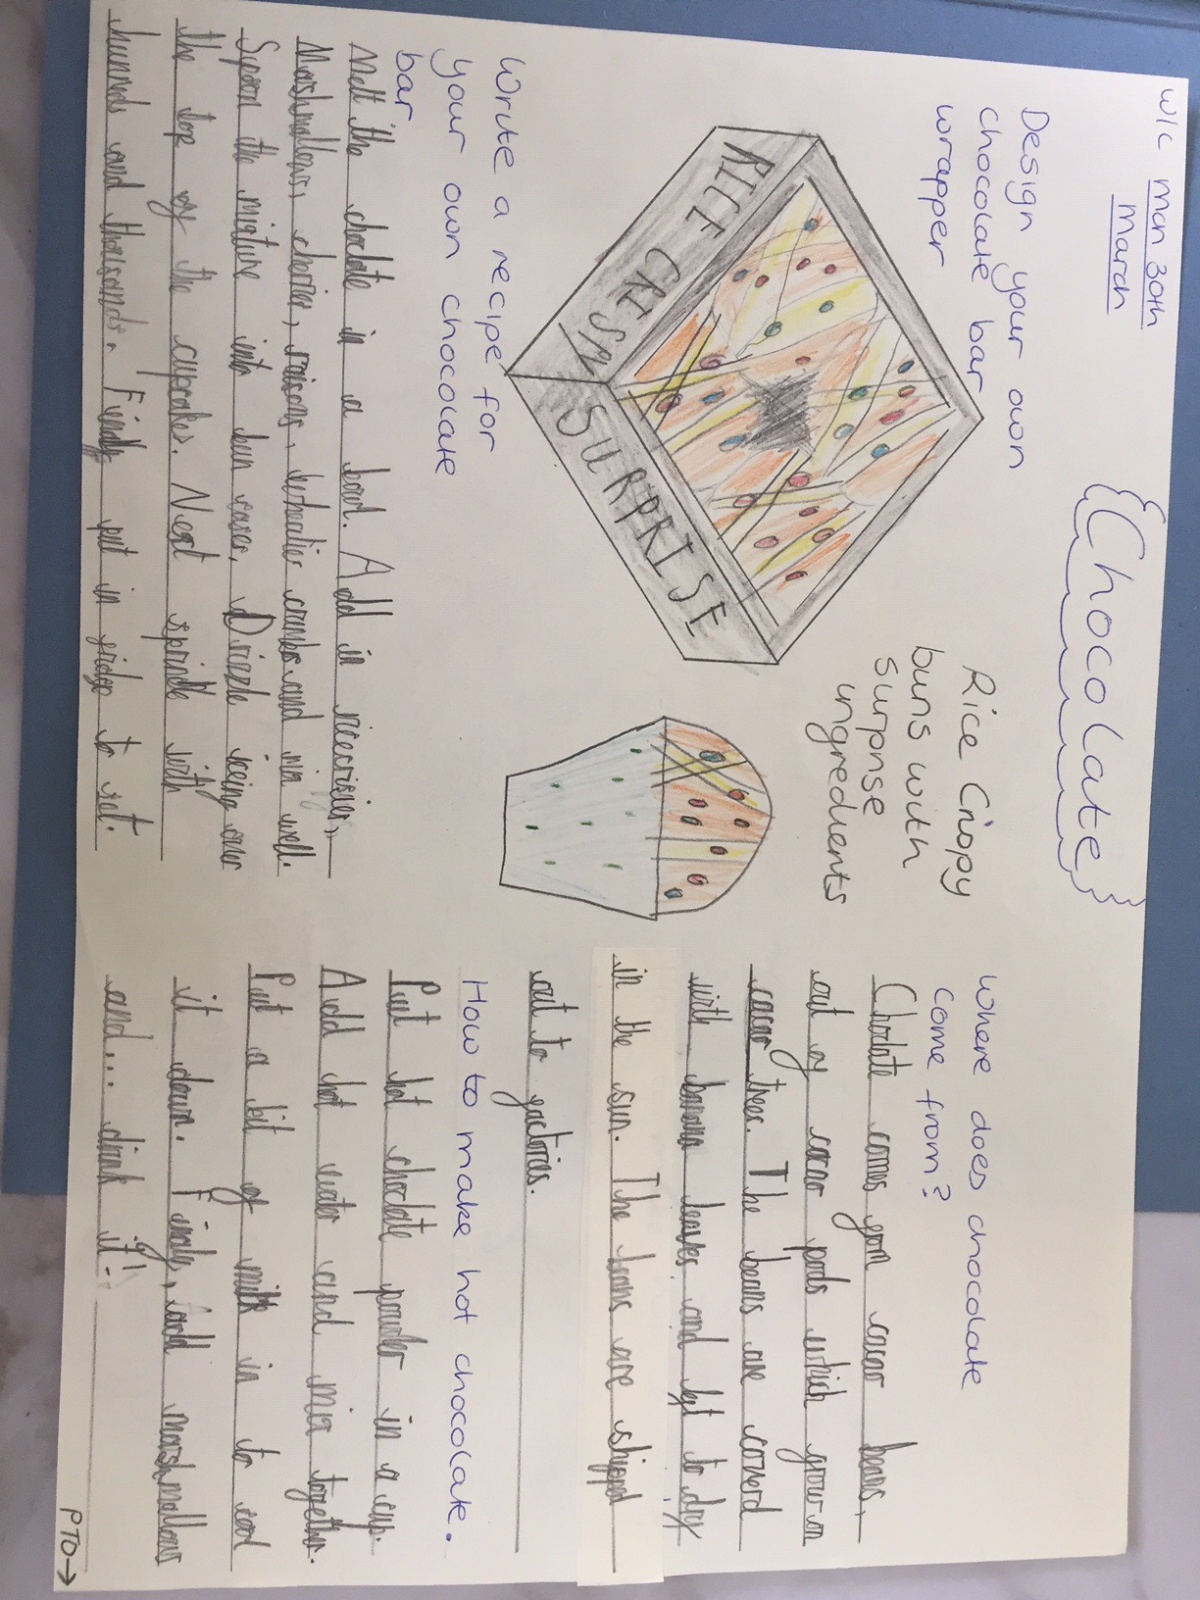 w/c mon 30th
march
{Chocolate}
Design your own
chocolate bar
wrapper
RICE CRISPY
SURPRISE
Rice Crispy
buns with
surprise
ingredients
Write a recipe for
your own chocolate
bar
Melt the choclate in a bowl. Add in ricecrisies,
Marshmallows, cherries, raisons, crumbs and mix well.
Spoon the mixture into bun cases, Drizzle icing over
the top of the cupcakes. Next sprinkle with
hunreds and thousands. Finally put in fridge to set.
Where does chocolate
come from?
Choclate comes from cacao beans,
out of cacao pods which grow on
cacao trees. The beans are coverd
with banana leaves and left to dry
in the sun. The beans are shipped
out to factories.
How to make hot chocolate.
Put hot choclate powder in a cup.
Add hot water and mix together.
Put a bit of milk in to cool
it down. Finaly, add marshmallows
and... drink it!
PTO→